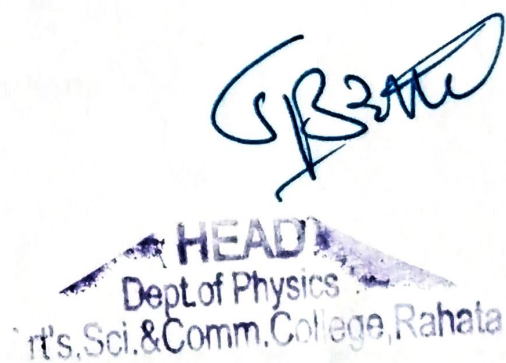 HEAD
Dept.of Physics
rt's,Sci.&Comm.College,Rahata